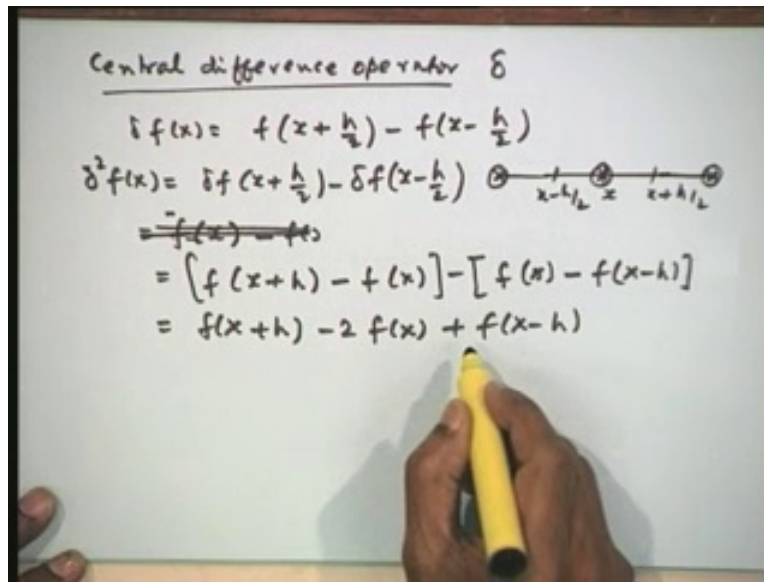 Central difference operator δ
δf(x) = f(x + h/2) - f(x - h/2)
δ²f(x) = δf(x + h/2) - δf(x - h/2)
x-h/2 x x+h/2
= f(x) - f()
= [f(x+h) - f(x)] - [f(x) - f(x-h)]
= f(x+h) - 2 f(x) + f(x-h)